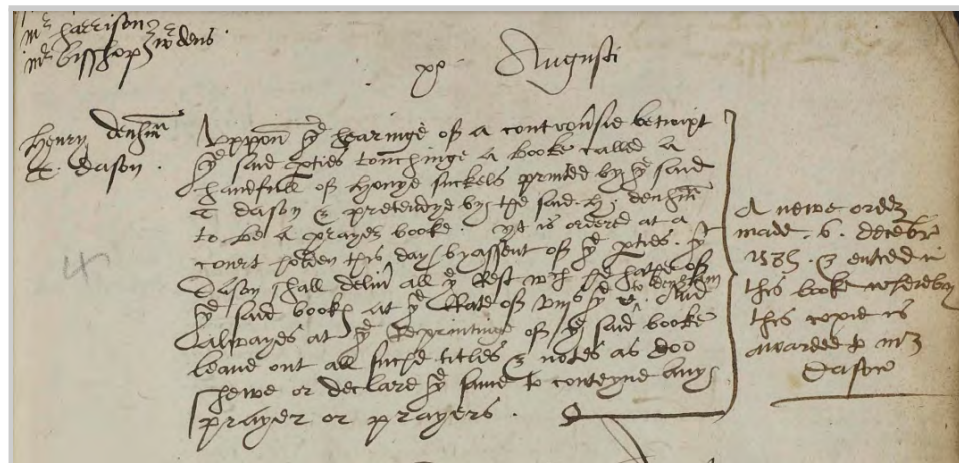 mr harrison
mr bisshop wardens
xo Augusti
Henry denhm
T. dason.
Uppon ye hearinge of a controūsie betwixt
ye said pties touchinge a booke called a
handfull of Honye suckels printed by ye said
T dason & pretendyd by the said H. denhm
to be a prayer booke. yt is ordered at a
court holden this day by assent of ye pties. yt
Dason shall deliū all ye Rest wch he hathe of
ye said bookes at ye Rate of viijs ye to denham And
alwayes at ye Reprintinge of ye said booke
leaue out all suche titles & notes as doo
shewe or declare ye same to conteyne any
prayer or prayers.
A newe order
made. 6. decēbr
1585. & entred in
this booke wherby
this copie is
awarded to mr
Dason